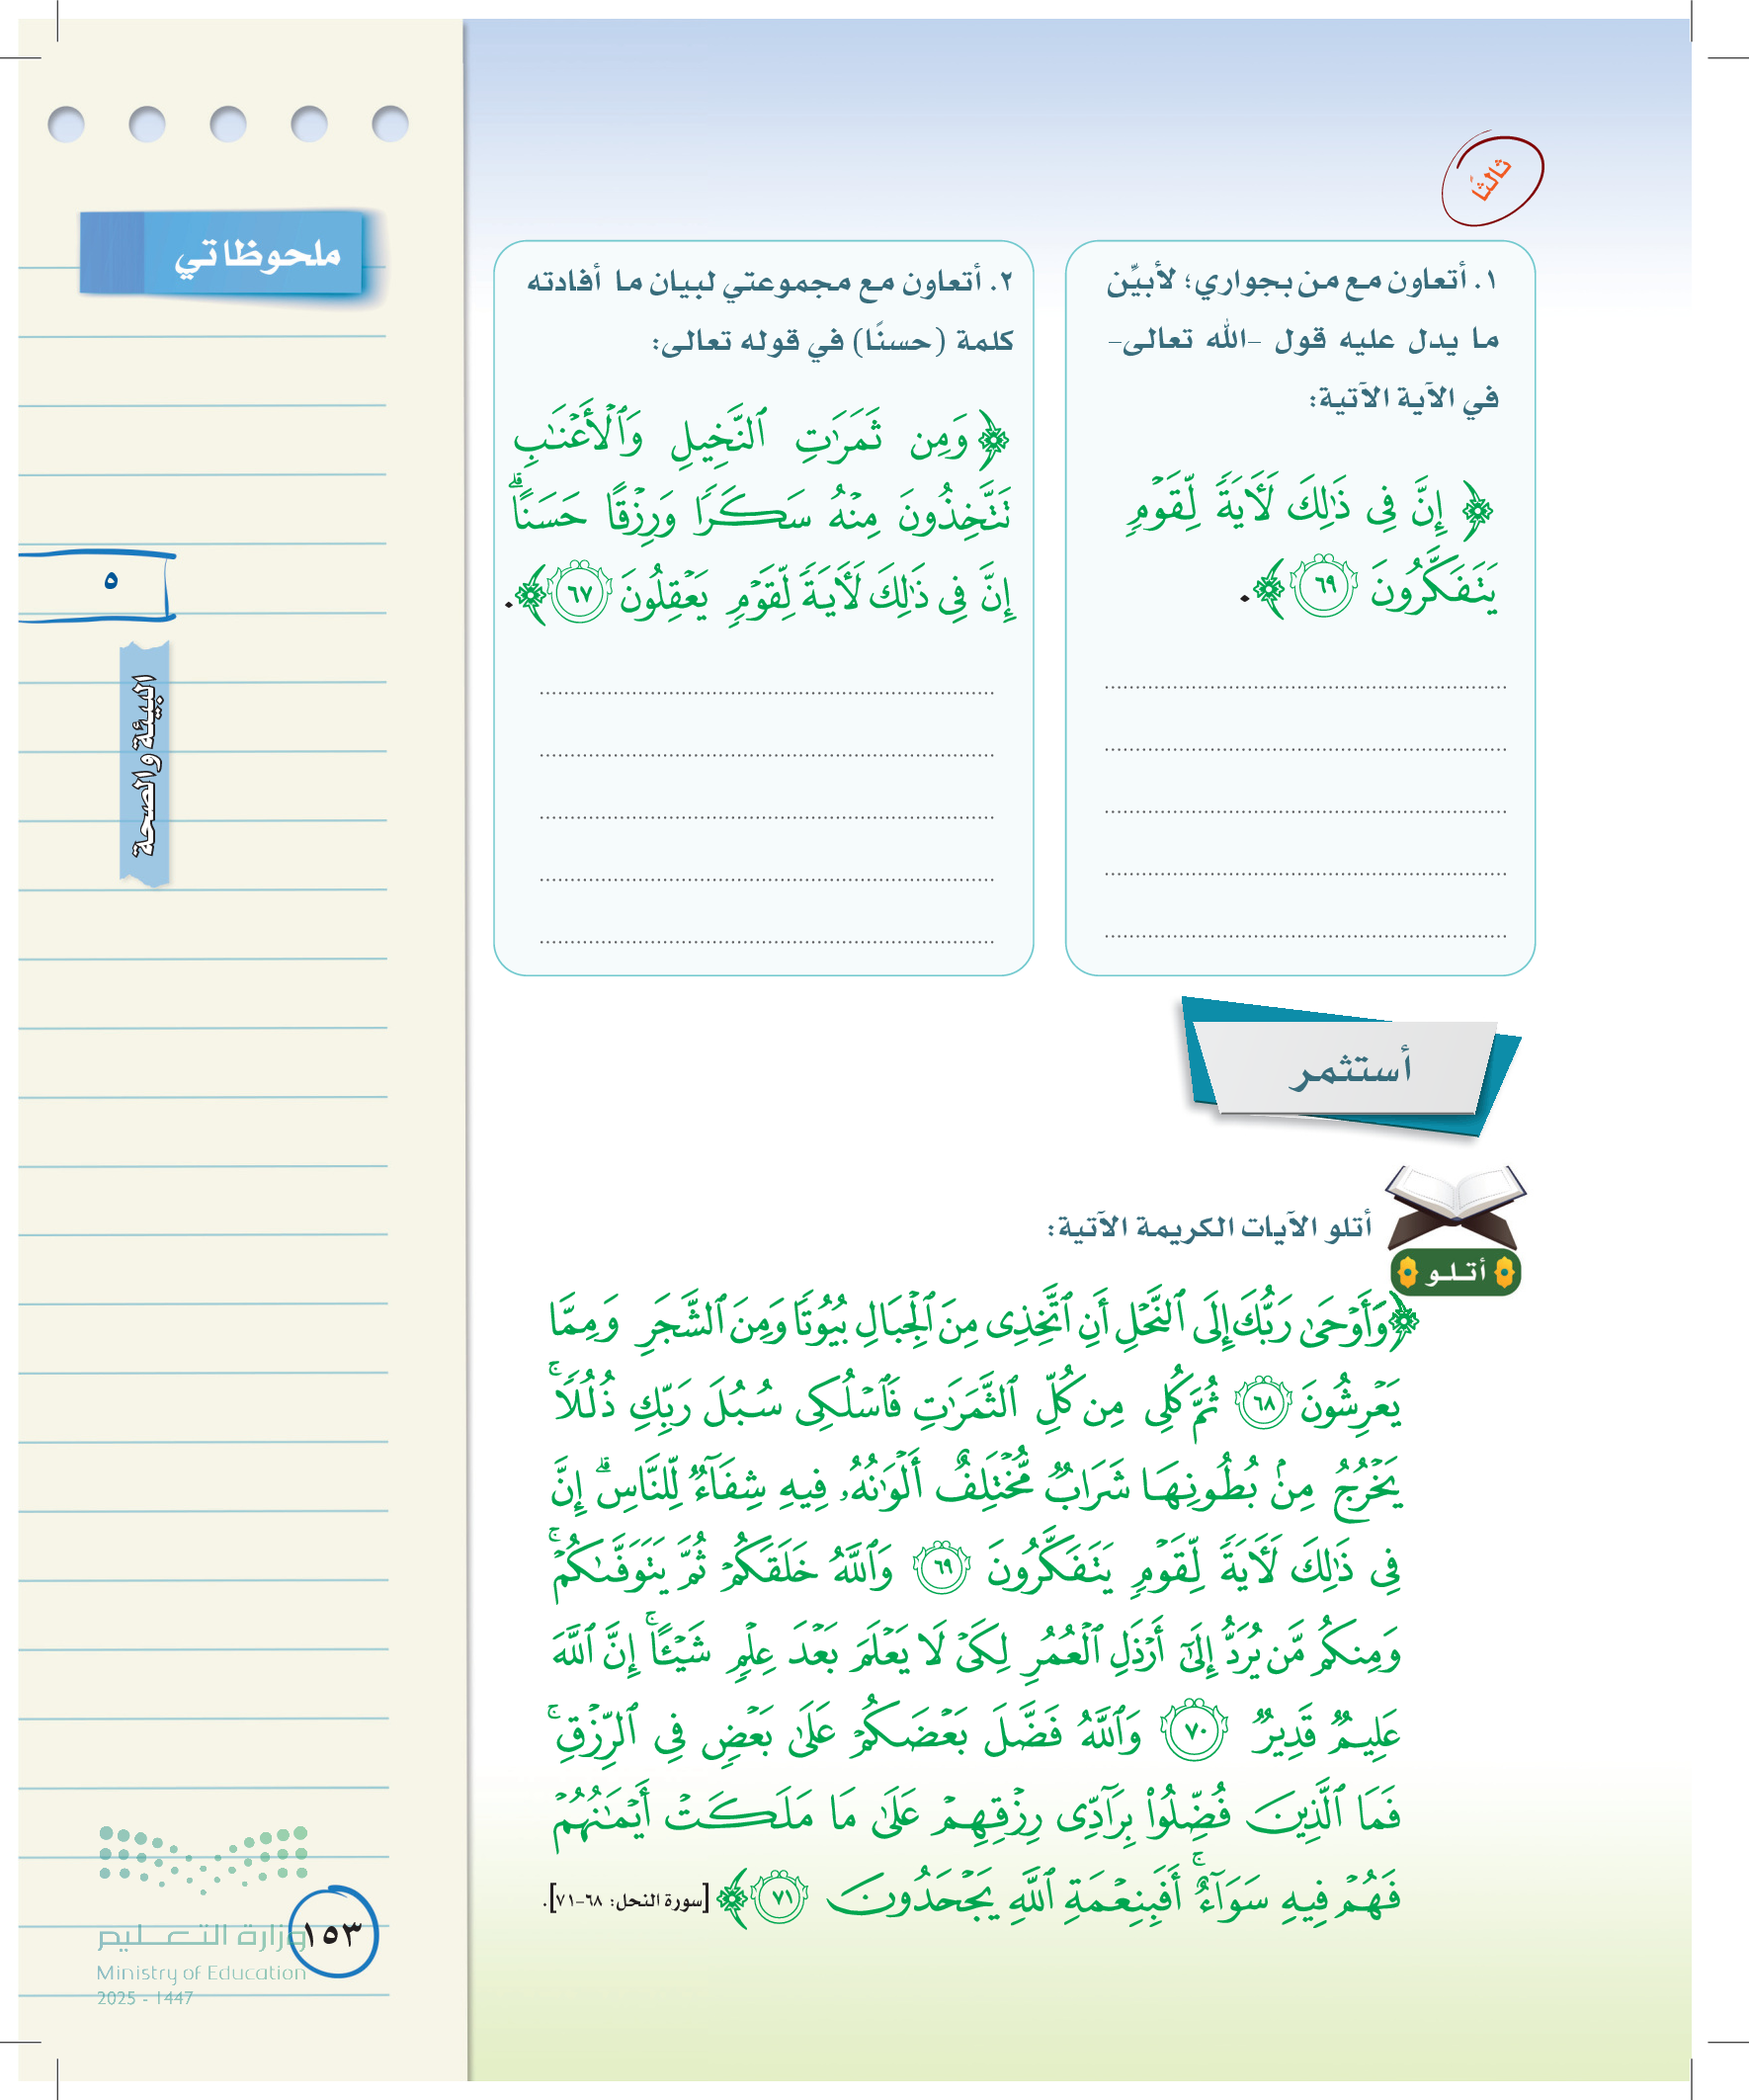 ثالثًا
١. أتعاون مع من بجواري؛ لأبيِّن
ما يدل عليه قول -الله تعالى-
في الآية الآتية:
﴿ إِنَّ فِى ذَٰلِكَ لَـَٔايَةً لِّقَوْمٍ
يَتَفَكَّرُونَ ٦٩ ﴾.
٢. أتعاون مع مجموعتي لبيان ما أفادته
كلمة (حسنًا) في قوله تعالى:
﴿ وَمِن ثَمَرَٰتِ ٱلنَّخِيلِ وَٱلْأَعْنَٰبِ
تَتَّخِذُونَ مِنْهُ سَكَرًا وَرِزْقًا حَسَنًا ۗ
إِنَّ فِى ذَٰلِكَ لَـَٔايَةً لِّقَوْمٍ يَعْقِلُونَ ٦٧ ﴾.
أستثمر
أتلو الآيات الكريمة الآتية:
أتلو
﴿وَأَوْحَىٰ رَبُّكَ إِلَى ٱلنَّحْلِ أَنِ ٱتَّخِذِى مِنَ ٱلْجِبَالِ بُيُوتًا وَمِنَ ٱلشَّجَرِ وَمِمَّا
يَعْرِشُونَ ٦٨ ثُمَّ كُلِى مِن كُلِّ ٱلثَّمَرَٰتِ فَٱسْلُكِى سُبُلَ رَبِّكِ ذُلُلًا ۚ
يَخْرُجُ مِنۢ بُطُونِهَا شَرَابٌ مُّخْتَلِفٌ أَلْوَٰنُهُۥ فِيهِ شِفَآءٌ لِّلنَّاسِ ۗ إِنَّ
فِى ذَٰلِكَ لَـَٔايَةً لِّقَوْمٍ يَتَفَكَّرُونَ ٦٩ وَٱللَّهُ خَلَقَكُمْ ثُمَّ يَتَوَفَّىٰكُمْ ۚ
وَمِنكُم مَّن يُرَدُّ إِلَىٰٓ أَرْذَلِ ٱلْعُمُرِ لِكَىْ لَا يَعْلَمَ بَعْدَ عِلْمٍ شَيْـًٔا ۚ إِنَّ ٱللَّهَ
عَلِيمٌ قَدِيرٌ ٧٠ وَٱللَّهُ فَضَّلَ بَعْضَكُمْ عَلَىٰ بَعْضٍ فِى ٱلرِّزْقِ ۚ
فَمَا ٱلَّذِينَ فُضِّلُوا۟ بِرَآدِّى رِزْقِهِمْ عَلَىٰ مَا مَلَكَتْ أَيْمَٰنُهُمْ
فَهُمْ فِيهِ سَوَآءٌ ۚ أَفَبِنِعْمَةِ ٱللَّهِ يَجْحَدُونَ ٧١ ﴾ [سورة النحل: ٦٨-٧١].
ملحوظاتي
٥
البيئة والصحة
وزارة التعليم
Ministry of Education
2025 - 1447
١٥٣